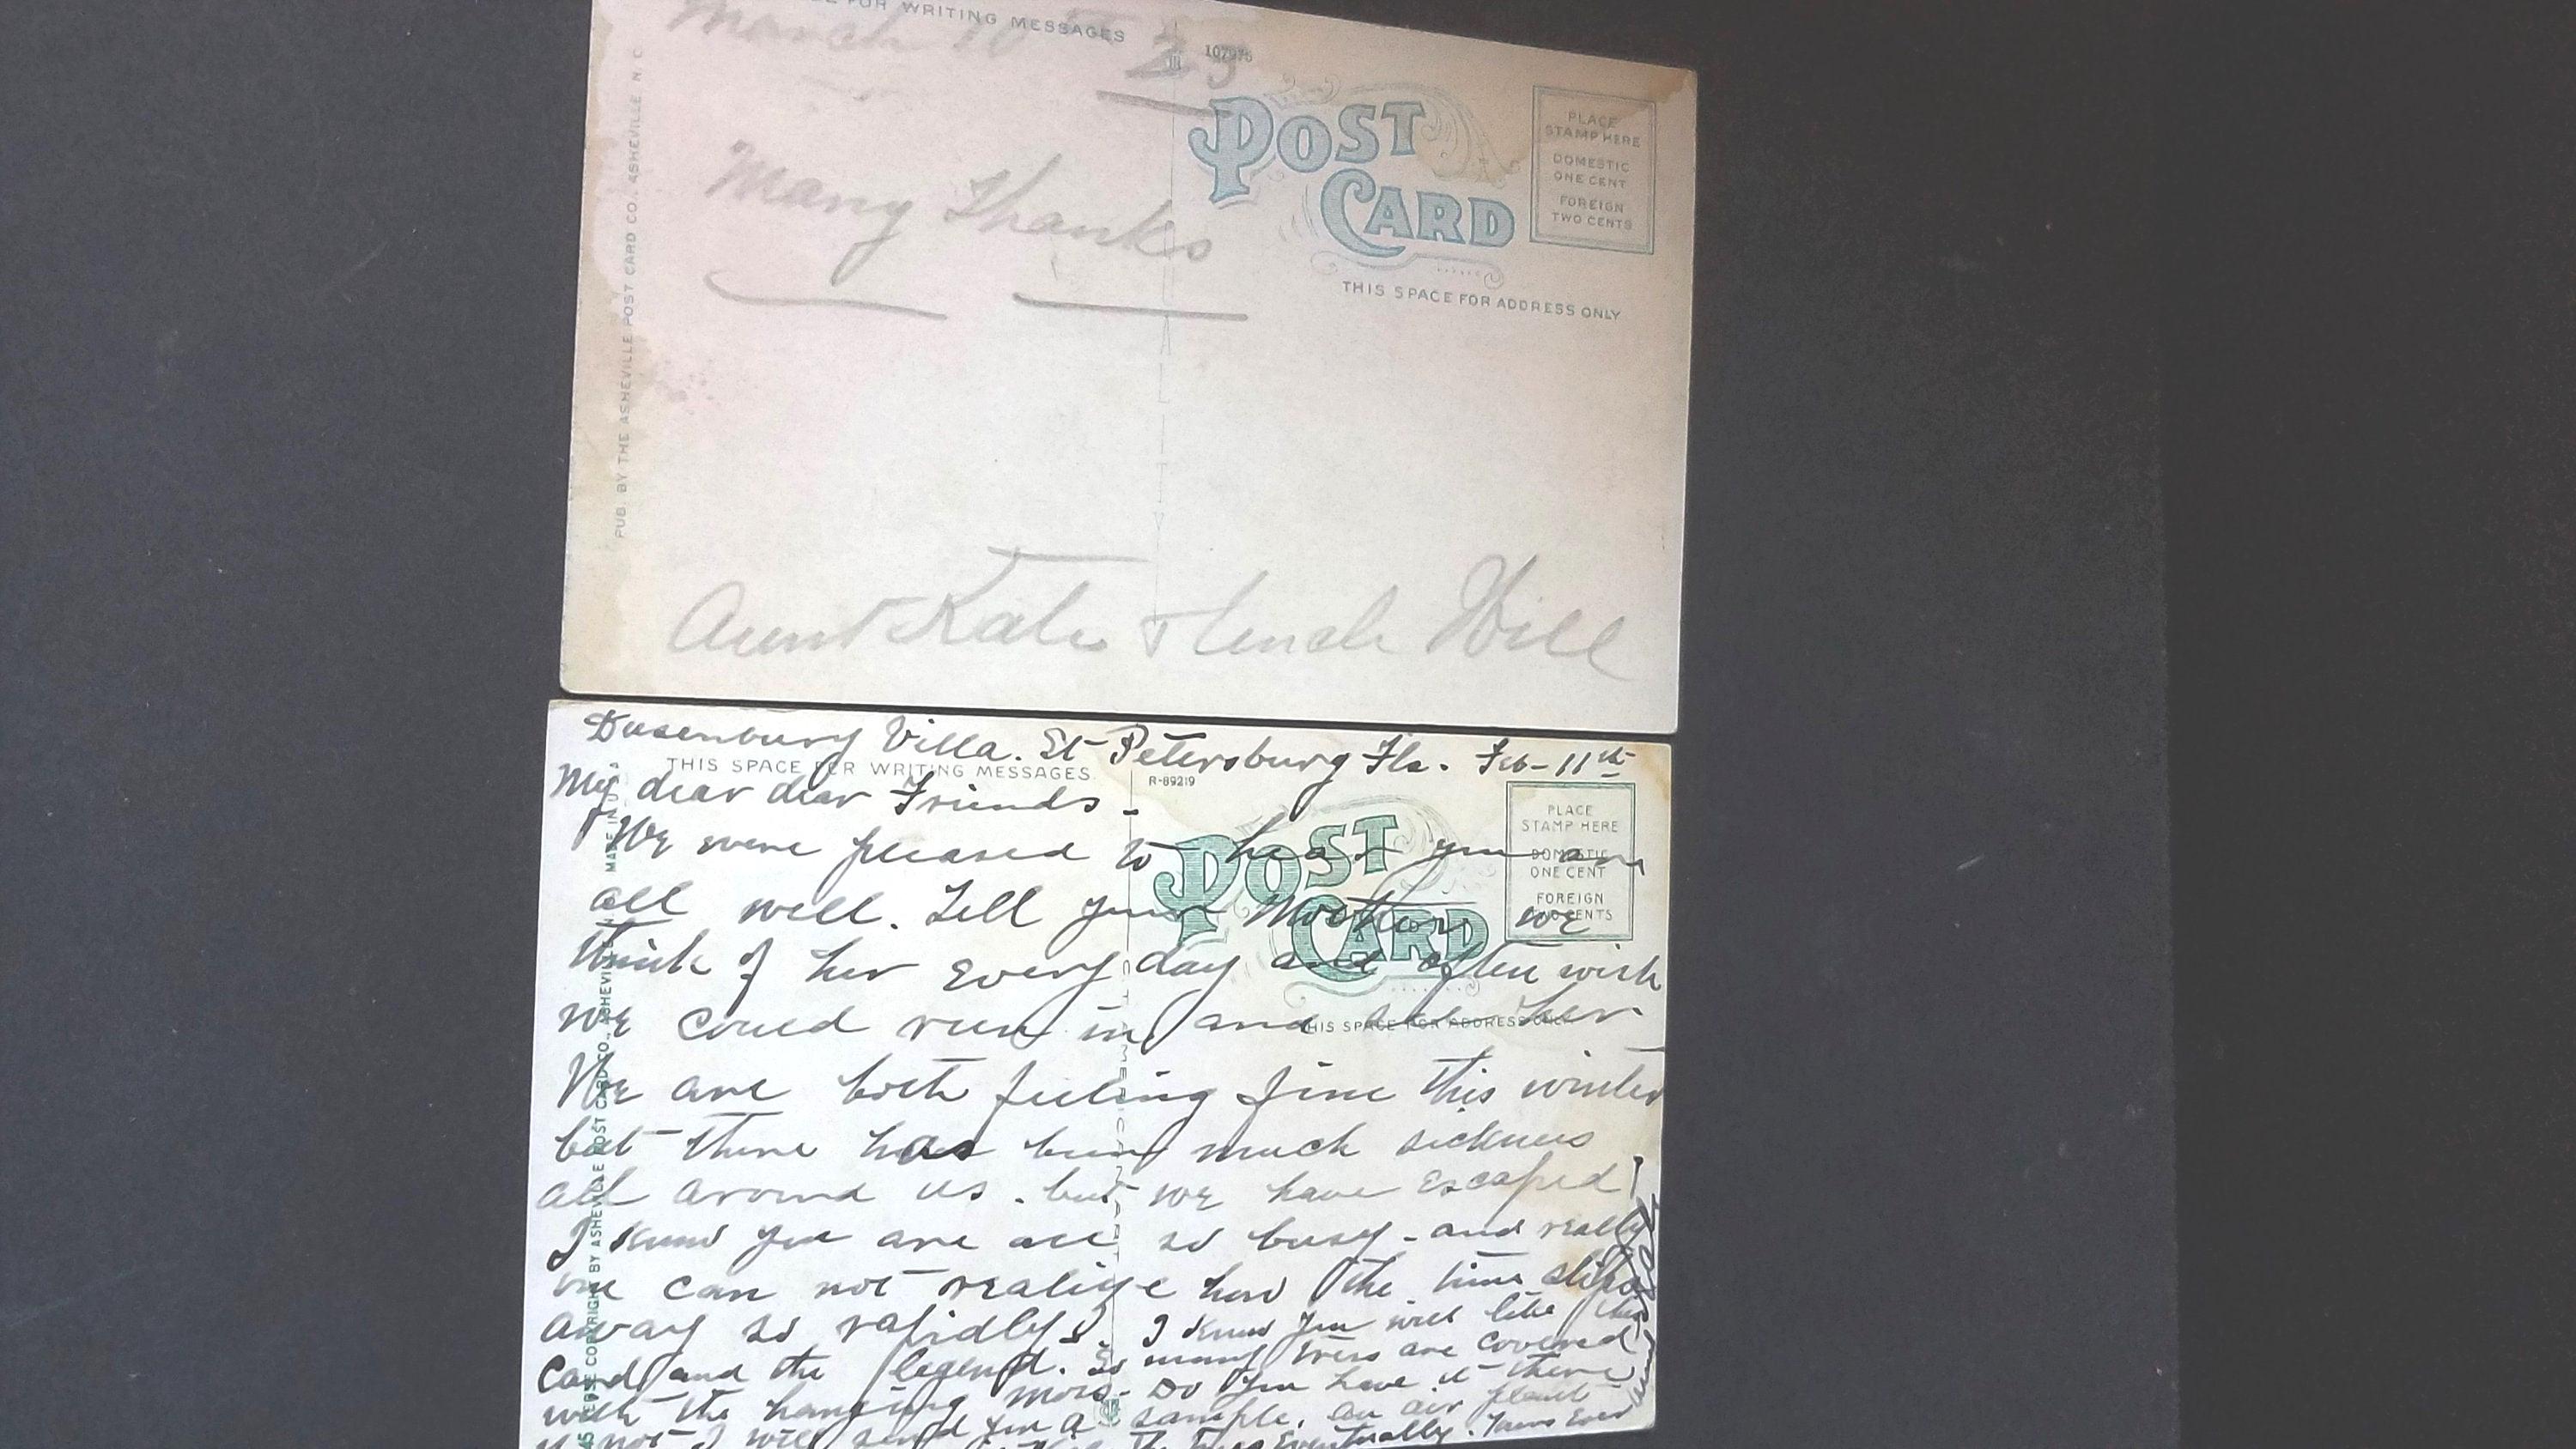 March 10 23
FOR WRITING MESSAGES
107976
POST
CARD
PLACE
STAMP HERE
DOMESTIC
ONE CENT
FOREIGN
TWO CENTS
THIS SPACE FOR ADDRESS ONLY
PUB. BY THE ASHEVILLE POST CARD CO., ASHEVILLE N. C.
Many Thanks
Aunt Kate & Uncle Will
Dusenbury Villa. St Petersburg Fla. Feb-11th
THIS SPACE FOR WRITING MESSAGES
R-89219
POST
CARD
PLACE
STAMP HERE
DOMESTIC
ONE CENT
FOREIGN
TWO CENTS
THIS SPACE FOR ADDRESS ONLY
My dear dear Friends -
We were pleased to hear you are
all well. Tell your Mother we
think of her every day and often wish
we could run in and see her
We are both feeling fine this winter
but there has been much sickness
all around us. but we have escaped!
I know you are all so busy - and really
one can not realize how the time slips
away so rapidly. I know you will like this
Card and the legend. So many trees are covered
with the hanging moss. Do you have it there
if not I will send you a sample. an air plant
the trees eventually. Yours Ever
REVERSE COPYRIGHT BY ASHEVILLE POST CARD CO., ASHEVILLE N. MADE IN U.S.A